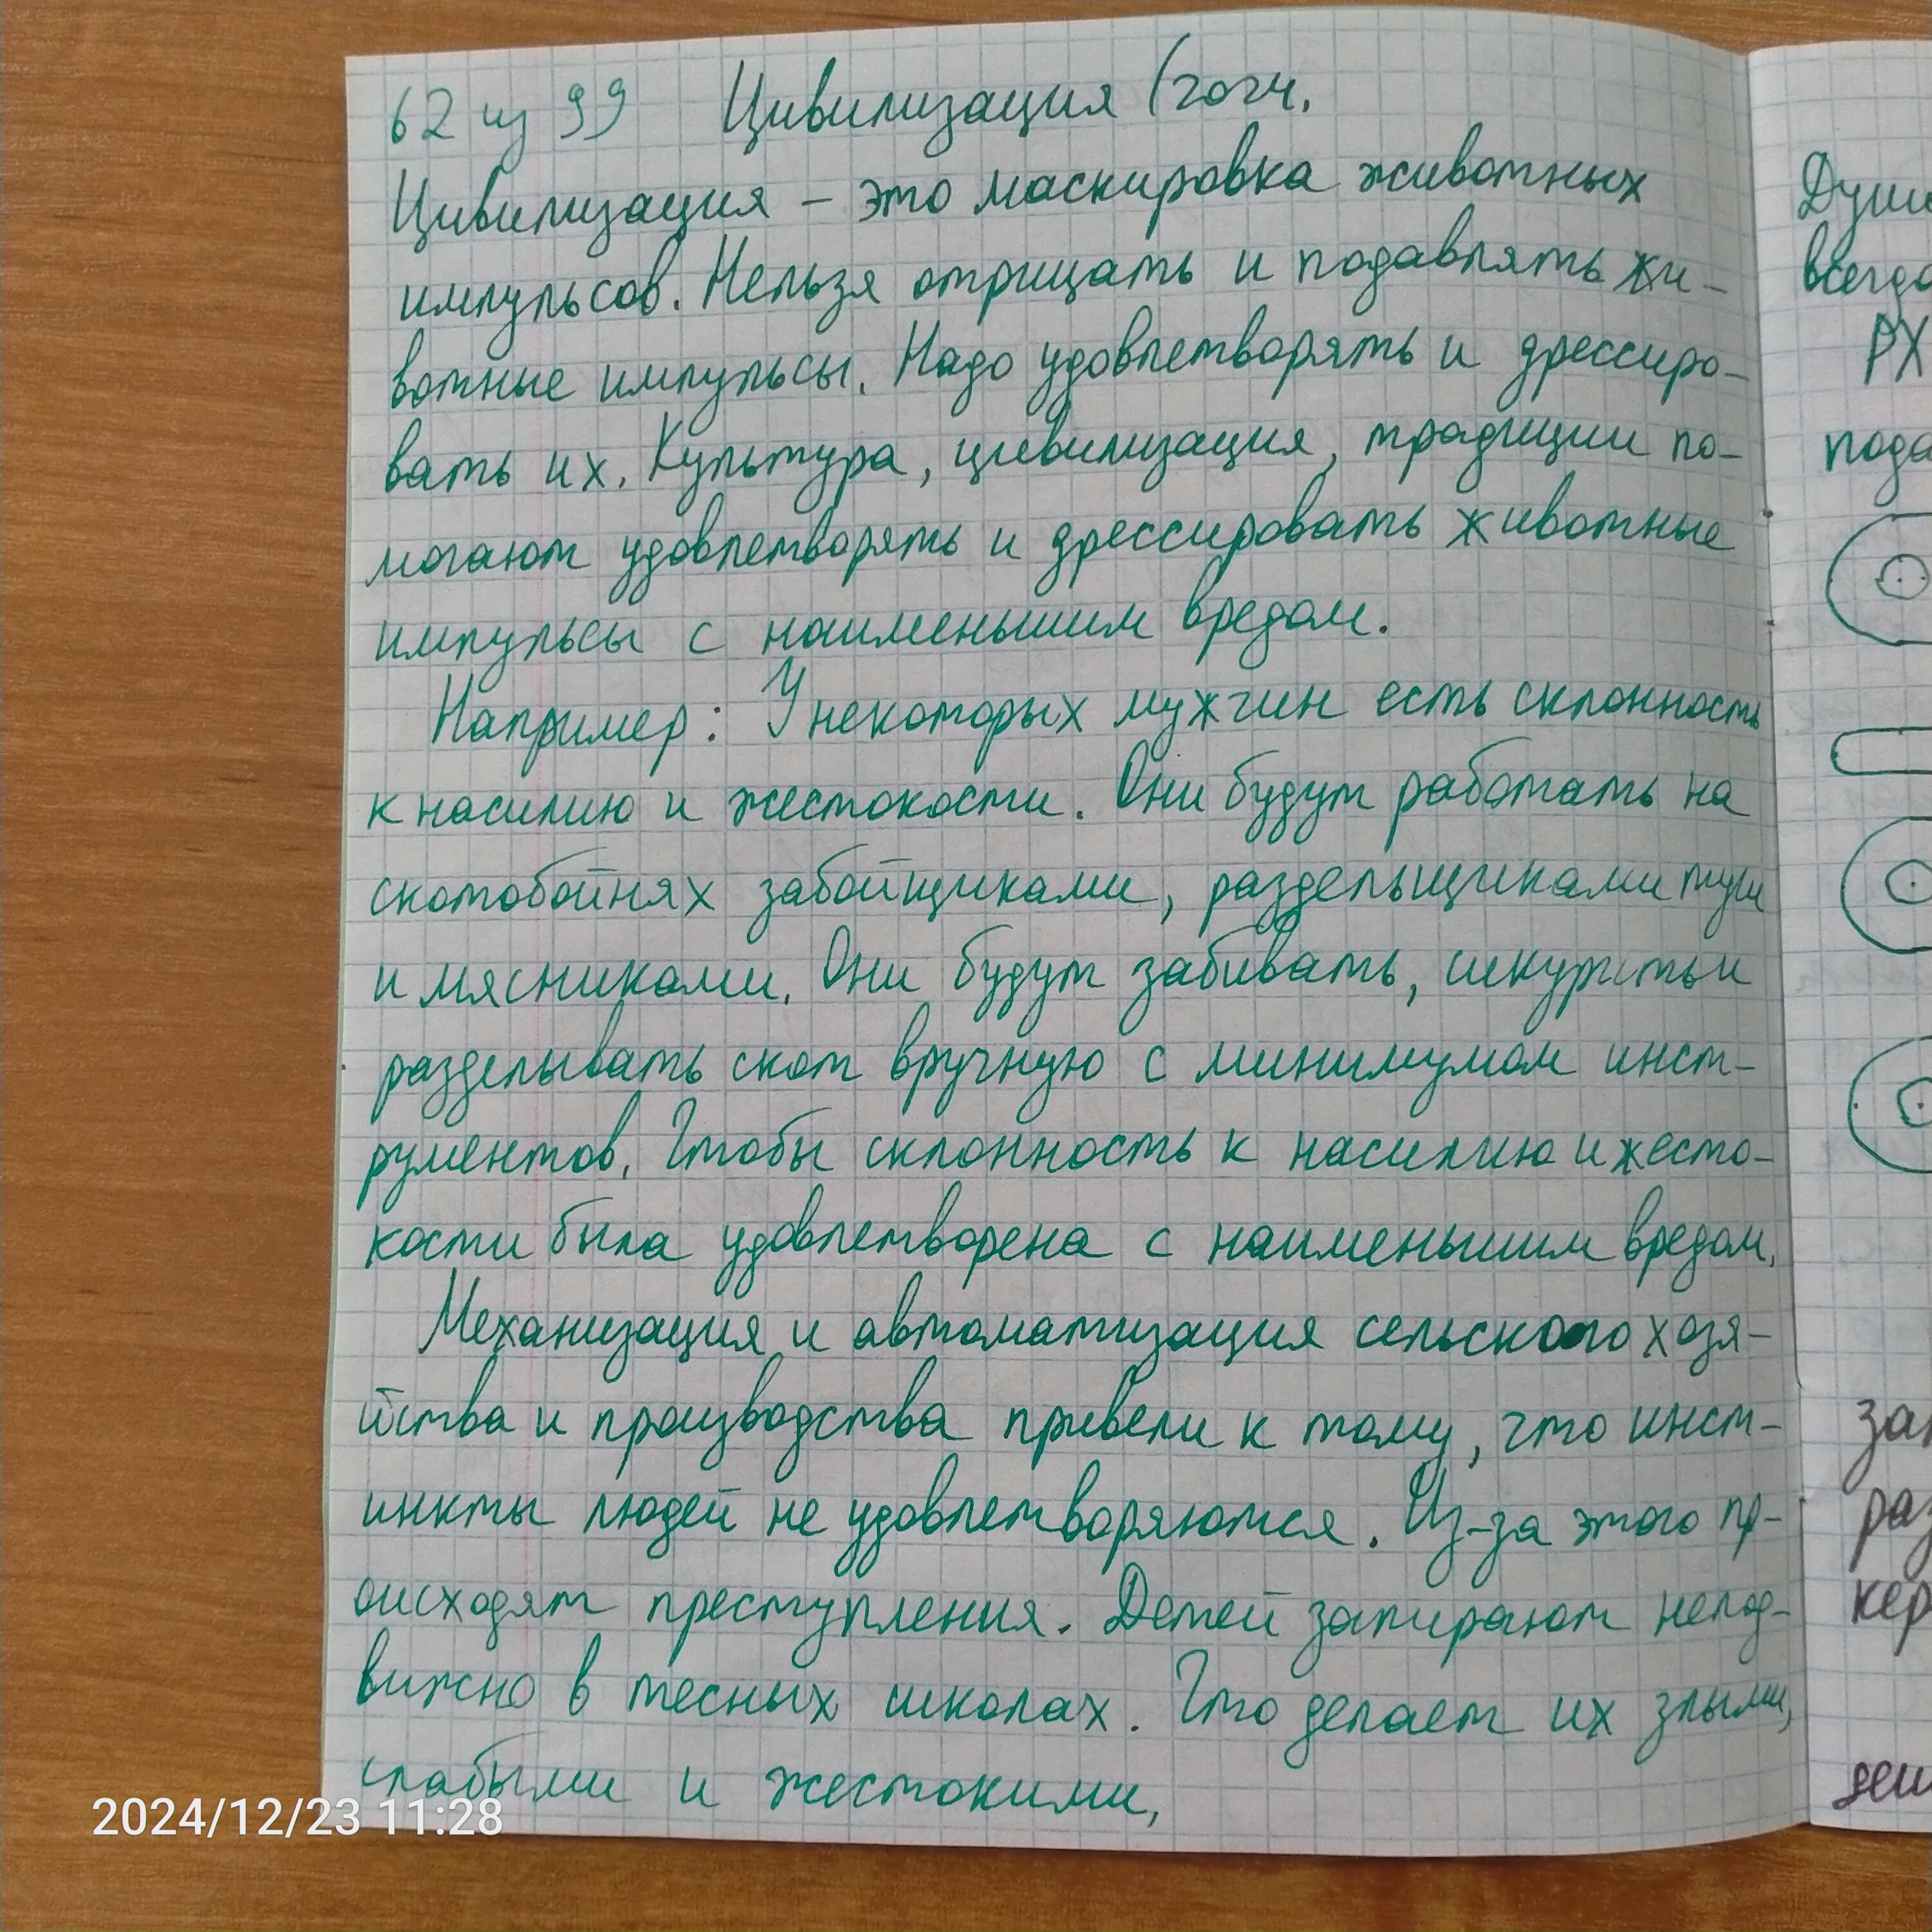 62 из 99 Цивилизация (
Цивилизация – это маскировка животных
импульсов. Нельзя отрицать и подавлять жи-
вотные импульсы. Надо удовлетворять и дрессиро-
вать их. Культура, цивилизация, традиции по-
могают удовлетворять и дрессировать животные
импульсы с наименьшим вредом.
Например: У некоторых мужчин есть склонность
к насилию и жестокости. Они будут работать на
скотобойнях забойщиками, раздельщиками туш
и мясниками. Они будут забивать, и
разделывать скот вручную с минимумом инст-
рументов. Чтобы склонность к насилию и жесто-
кости была удовлетворена с наименьшим вредом.
Механизация и автоматизация сельского хозя-
йства и производства привели к тому, что инст-
инкты людей не удовлетворяются. Из-за этого пр-
оисходят преступления. Детей запирают непод-
вижно в тесных школах. Что делает их злыми,
слабыми и жестокими,
Души
всегда
РХ
пода
за
раз
кер
2024/12/23 11:28